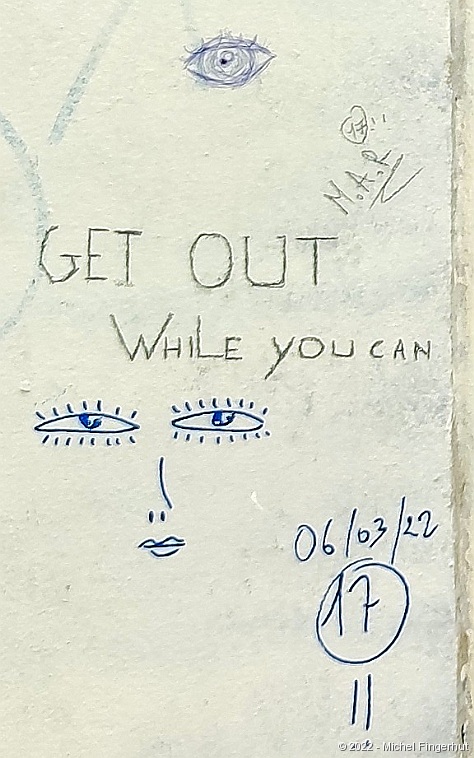 17!!
M.A.R
GET OUT
WHILE YOU CAN
06/03/22
17
!!
© 2022 - Michel Fingerhut